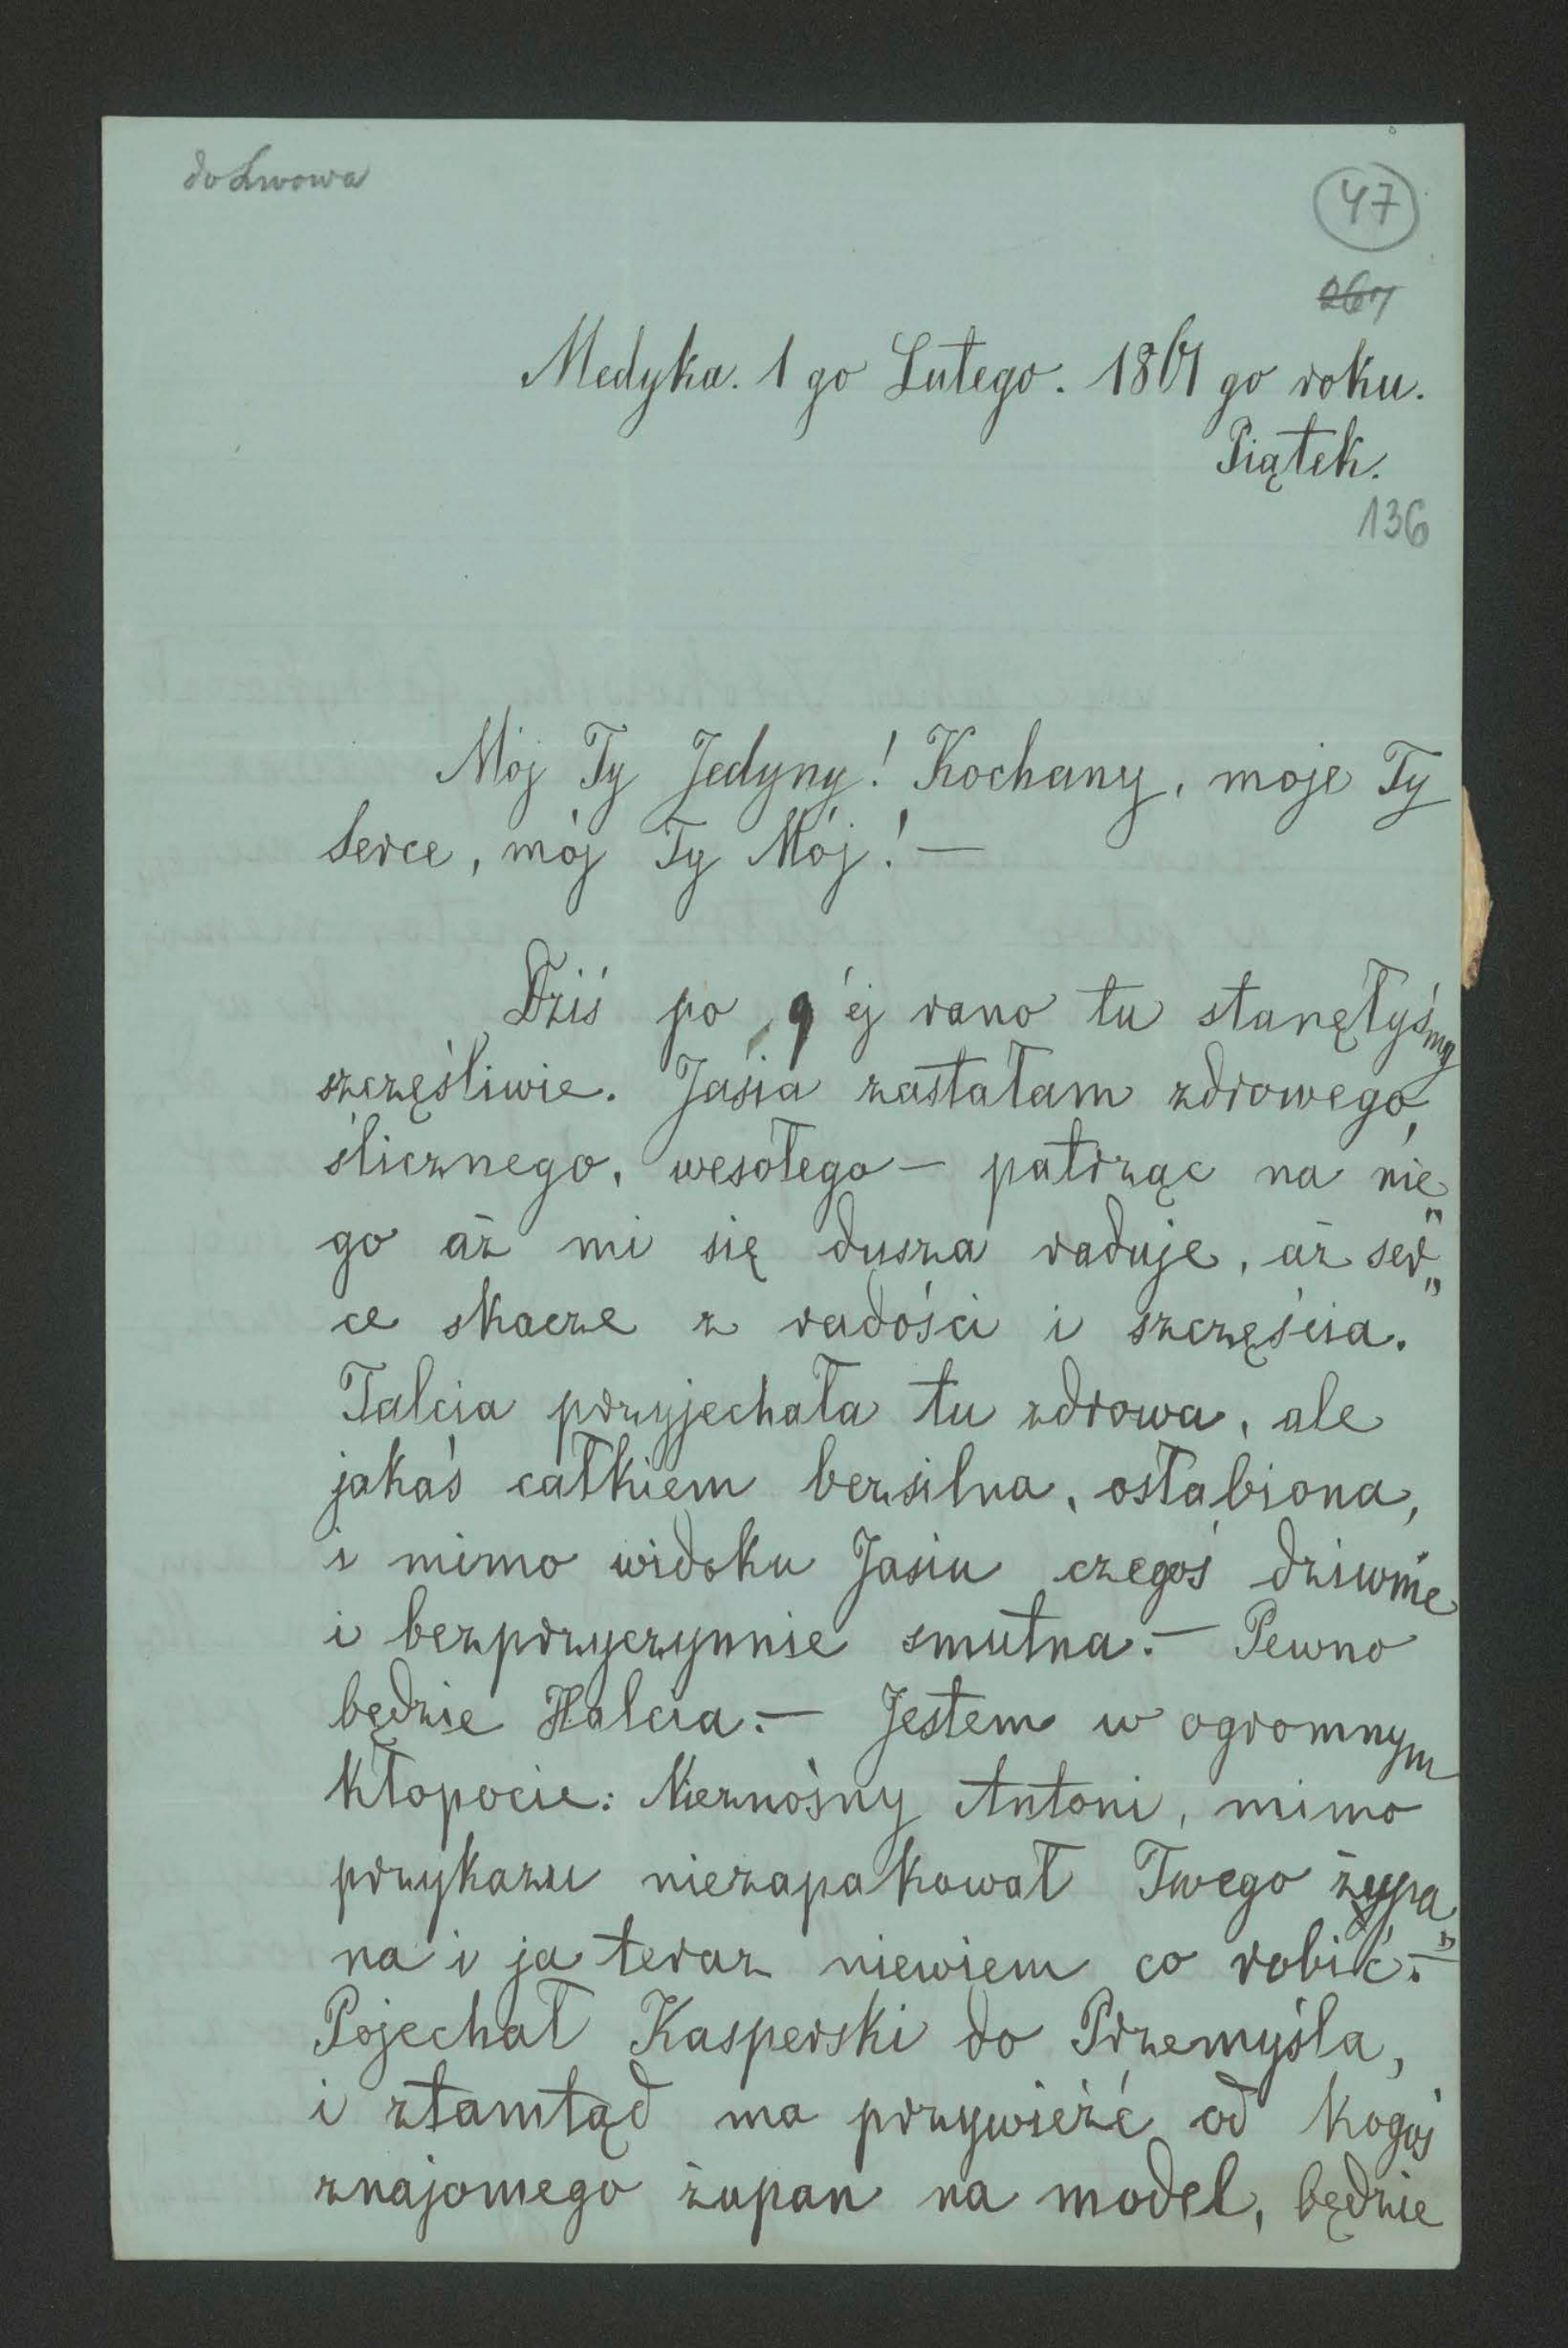 do Lwowa
47
267
Medyka. 1 go Lutego. 1861 go roku.
Piątek.
136
Mój Ty Jedyny! Kochany, moje Ty
serce, mój Ty Mój! —
Dziś po 9 éj rano tu stanęłyśmy
szczęśliwie. Jasia zastałam zdrowego,
ślicznego, wesołego — patrząc na nie„
go aż mi się dusza raduje, aż ser„
ce skacze z radości i szczęścia.
Talcia przyjechała tu zdrowa, ale
jakaś całkiem bezsilna, osłabiona,
i mimo widoku Jasiu czegoś dziwnie
i bezprzyczynnie smutna. — Pewno
będzie Halcia. — Jestem w ogromnym
kłopocie: Nieznośny Antoni, mimo
przykazu niezapakował Twego żupa„
na i ja teraz niewiem co robić. —
Pojechał Kasperski do Przemyśla,
i ztamtąd ma przywieźć od kogoś
znajomego żupan na model, będzie